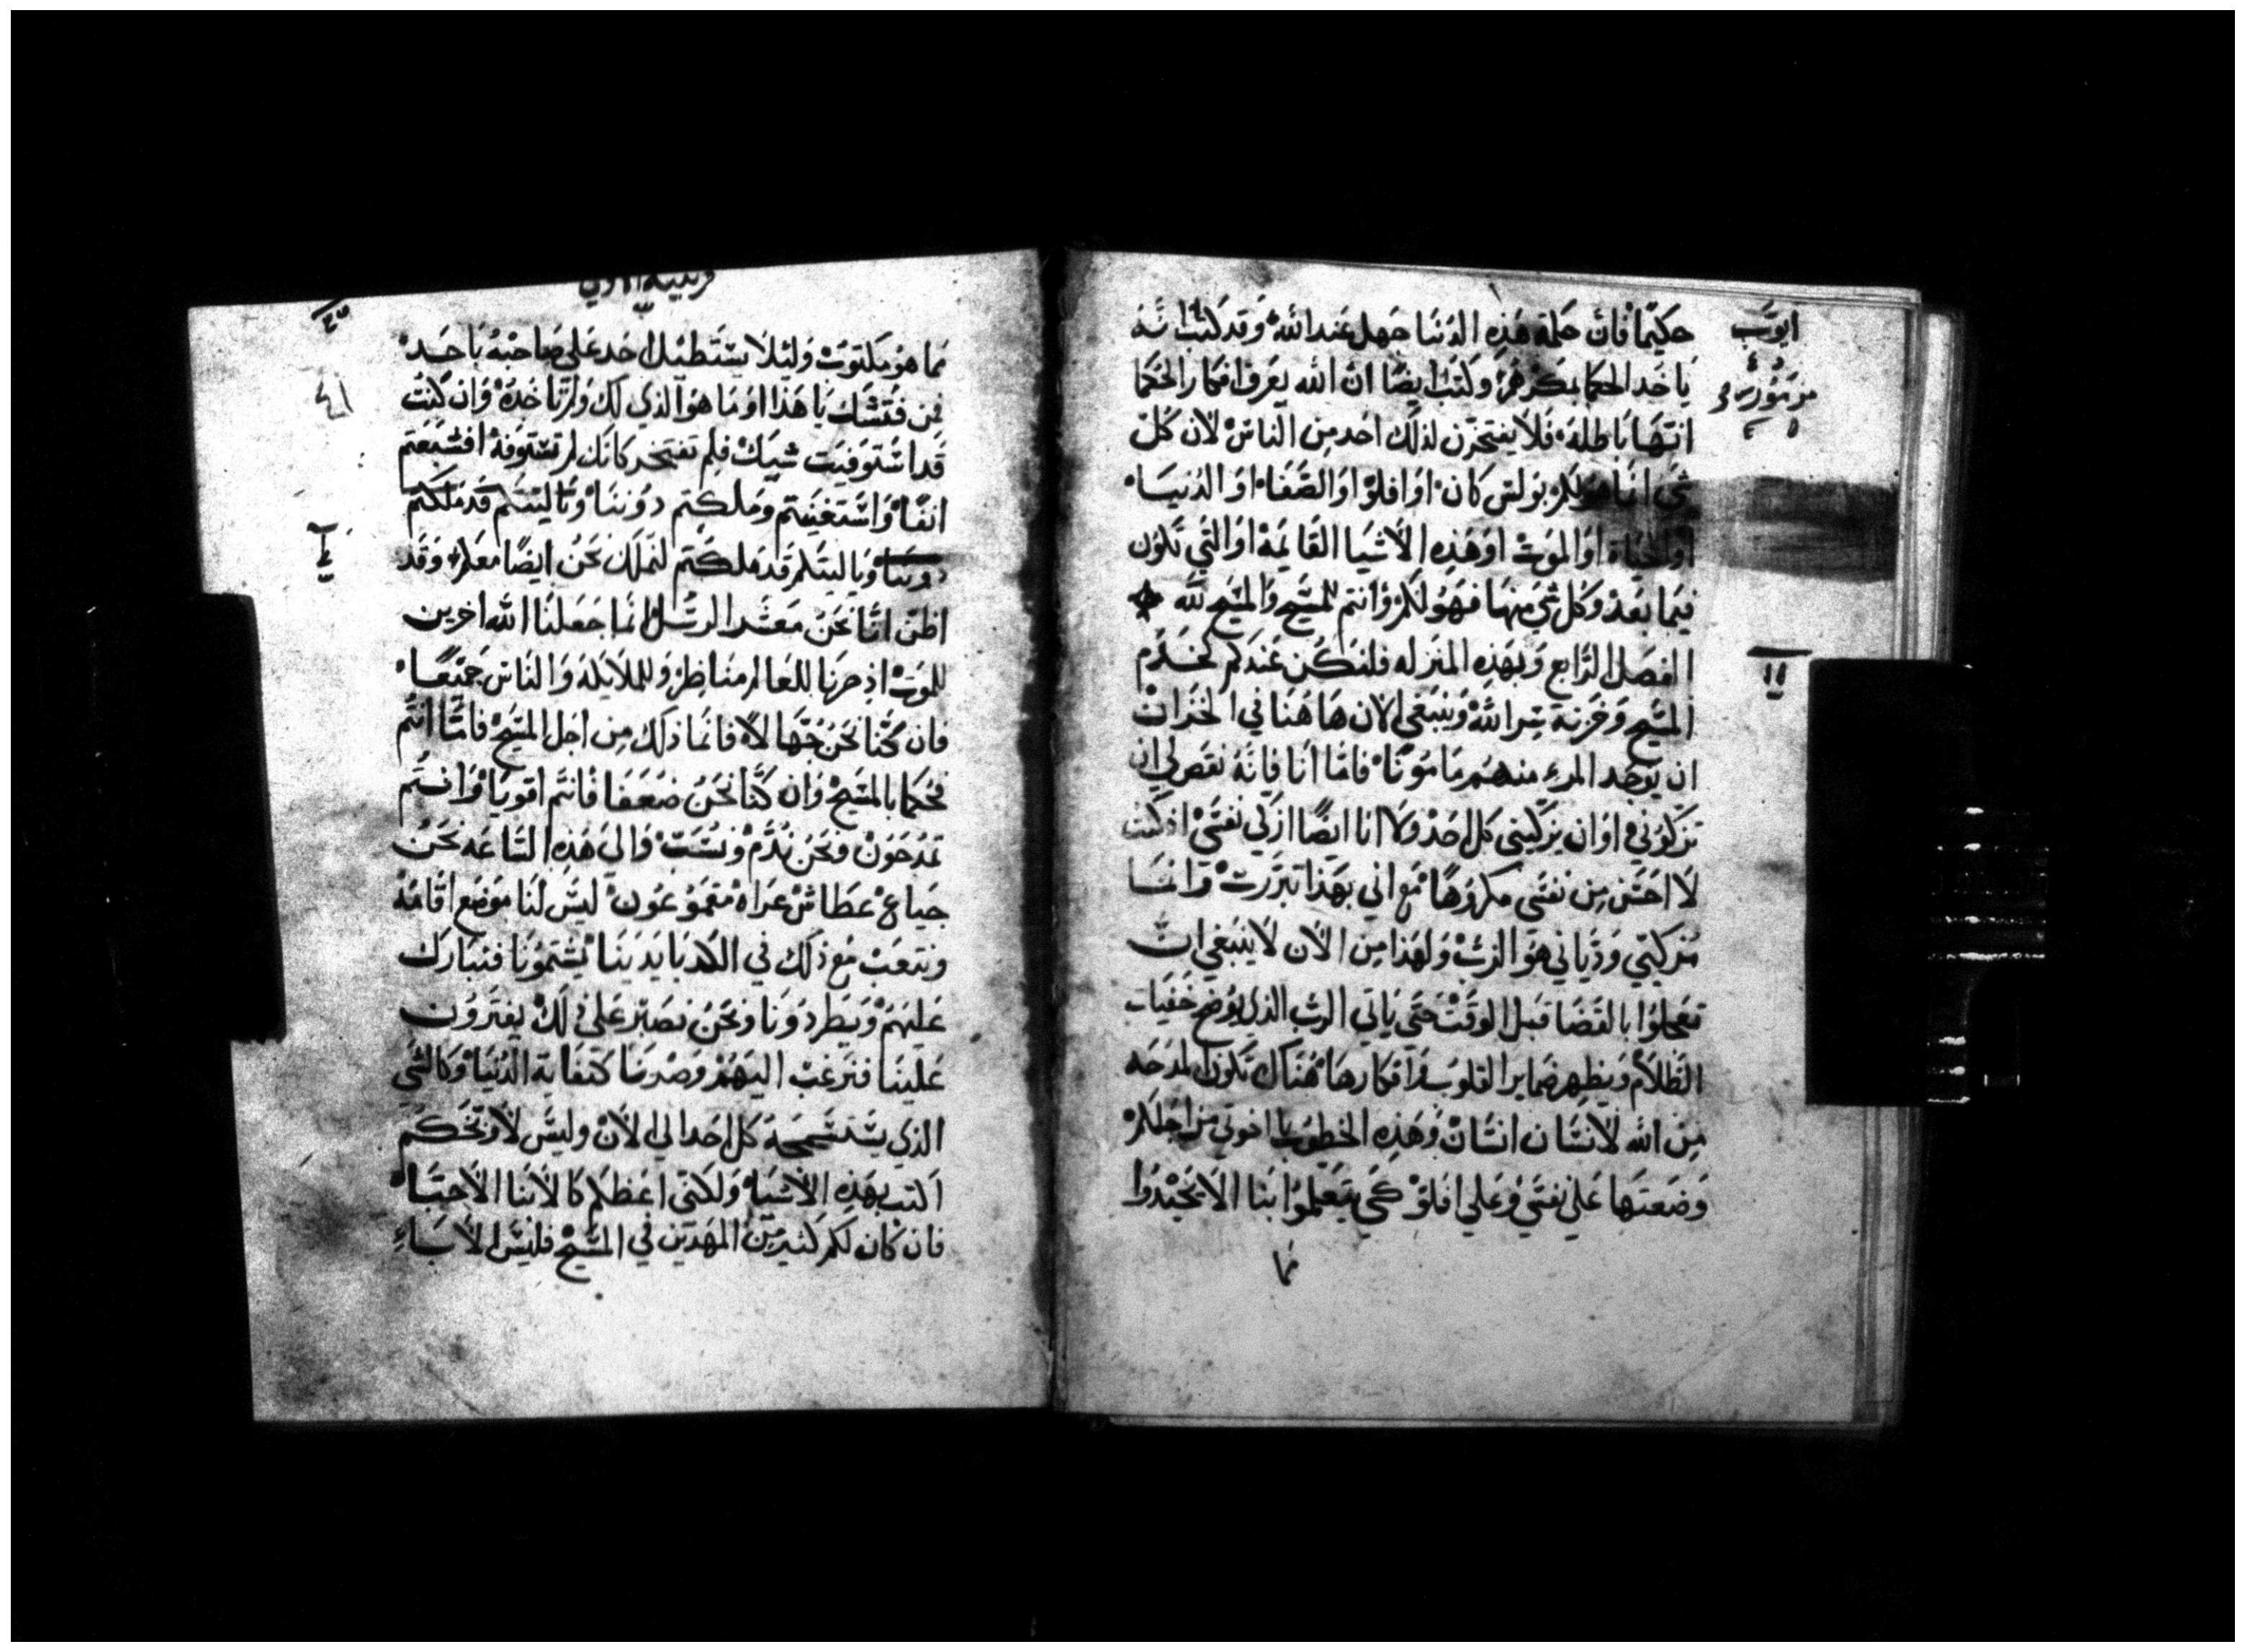 ايوب
مزمور
حكيمًا فان حكمة هذه الدنيا جهل عند الله وقد كتب انه
ياخد الحكما بمكرهم وكتب ايضًا ان الله يعرف افكار الحكما
انها باطله فلا يفتخرن لذلك احد من الناس لان كل
شي انما هو لكم بولس كان او افلو او الصفا او الدنيا
او الحياة او الموت او هذه الاشيا القايمة او التي تكون
فيما بعد وكل شي منها فهو لكم وانتم للمسيح والمسيح لله
الفصل الرابع وبهذه المنزله فلنكن عندكم كخدم
المسيح وخزنة سر الله وينبغي الان هاهنا في الخزان
ان يوجد المرء منهم مامونًا فاما انا فانه نقص لي ان
تزكوني او ان يزكيني كل احد ولا انا ايضًا ازكي نفسي اذ كنت
لا احس من نفسي مكروهًا مع اني بهذا تبررت وانما
مزكيي ودياني هو الرب ولهذا من الان لا ينبغي ان
تعجلوا بالقضا قبل الوقت حتي ياتي الرب الذي يوضح خفيات
الظلام ويظهر ضماير القلوب وافكارها هناك تكون المدحه
من الله لانسان انسان وهذه الخطوب يا اخوتي من اجلكم
وضعتها علي نفسي وعلي افلو كي يتعلموا بنا الا يخيدوا
١١
عما
قرنتيه الاولي
عما هو مكتوب وليلا يستطيل احد علي صاحبه باحد
فمن فتشك يا هذا او ما هو الذي لك ولم تاخده وان كنت
قد استوفيت شيك فلم تفتخر كانك لم تستوفه افشبعتم
انفًا واستغنيتم وملكتم دوننا وياليتكم قد ملكتم
دوننا وياليتكم قد ملكتم لنملك نحن ايضًا معكم وقد
اظن اننا نحن معشر الرسل انما جعلنا الله اخرين
للموت اذ صرنا للعالم مناظر وللملايكة والناس جميعًا
فان كنا نحن جهالا فانما ذلك من اجل المسيح فاما انتم
فحكما بالمسيح وان كنا نحن ضعفا فانتم اقويا وانتم
تمدحون ونحن نذم ونشتت والي هذه الساعه نحن
جياع عطاش عراه مقموعون ليس لنا موضع اقامة
ونتعب مع ذلك في الكد بايدينا يشتمونا فنبارك
عليهم ويطردونا ونحن نصبر علي ذلك يفترون
علينا فنرغب اليهم وصرنا كنفاية الدنيا وكالشي
الذي يستسمجه كل احد الي الان وليس لاوبخكم
اكتب بهذه الاشيا ولكني اعظكم كالابنا الاحبا
فان كان لكم كثير من المهدين في المسيح فليس الاباء